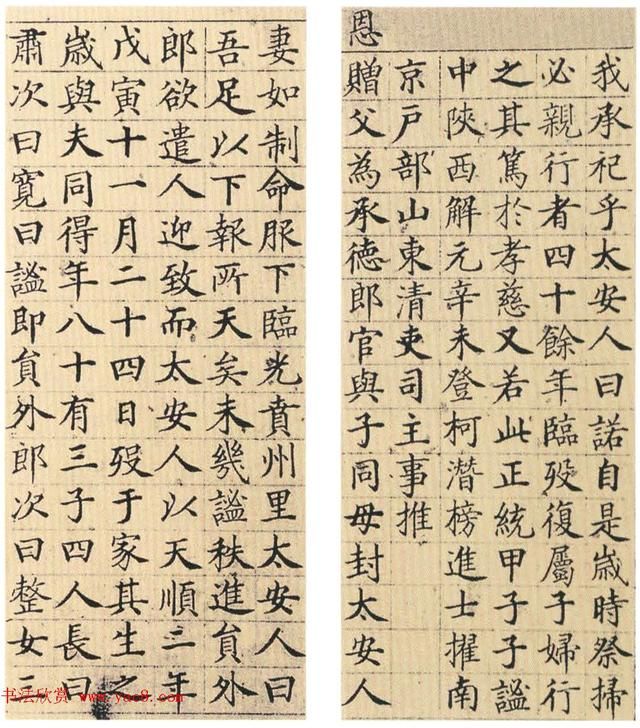 我承祀乎太安人曰諾自是歲時祭掃
必親行者四十餘年臨歿復屬子婦行
之其篤於孝慈又若此正統甲子子謐
中陝西解元辛未登柯潛榜進士擢南
京戶部山東清吏司主事推
恩贈父為承德郎官與子同母封太安人
妻如制命服下臨光賁州里太安人曰
吾足以下報所天矣未幾謐秩進貟外
郎欲遣人迎致而太安人以天順三年
戊寅十一月二十四日歿于家其生之
歲與夫同得年八十有三子四人長曰
肅次曰寬曰謐即貟外郎次曰整女三
书法欣赏 www.yac8.com